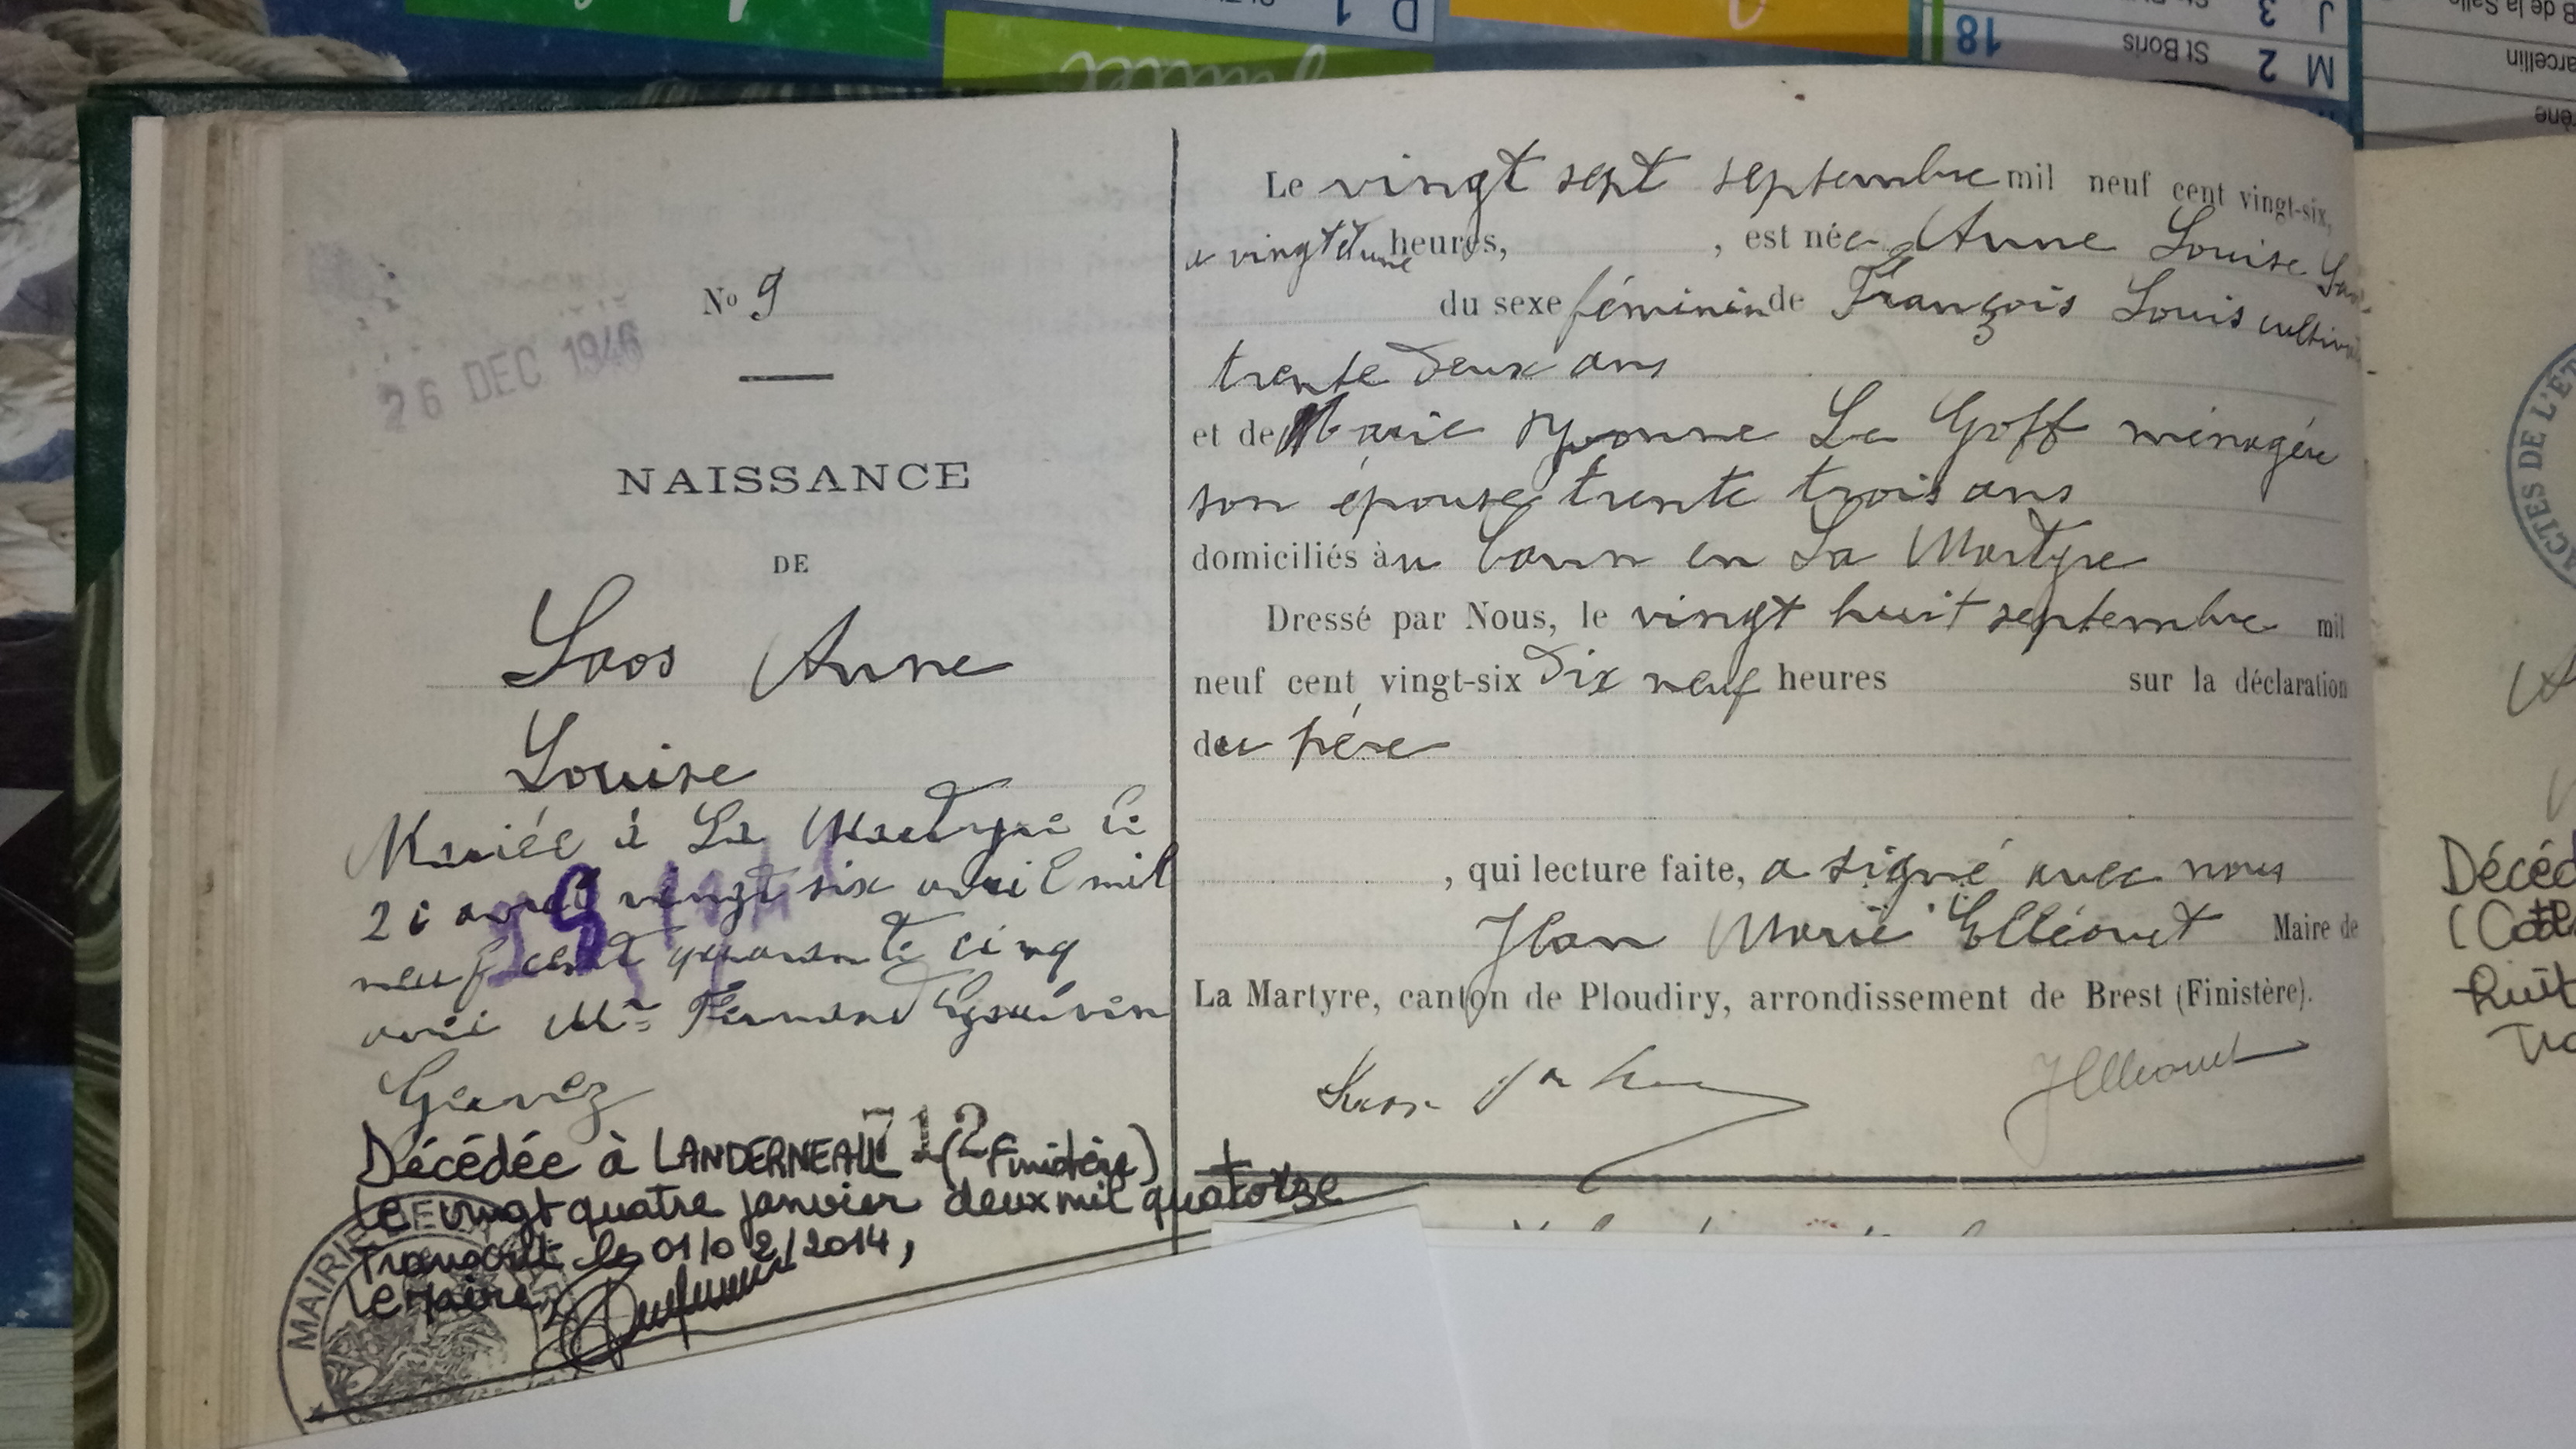 No 9
26 DEC 1946
NAISSANCE
DE
Laos Anne
Louise
Mariée à La Martyre le
vingt six avril mil
neuf cent quarante cinq
avec Mr
Décédée à LANDERNEAU (Finistère)
712
le vingt quatre janvier deux mil quatorze
Transcrit le 01/02/2014,
Le Maire,
MAIRIE DE
Le vingt sept septembre mil neuf cent vingt-six,
a vingt et une heures, , est née Anne Louise
du sexe féminin de François Louis
trente deux ans
et de Marie Yvonne Le Goff ménagère
son épouse trente trois ans
domiciliés au en La Martyre
Dressé par Nous, le vingt huit septembre mil
neuf cent vingt-six dix neuf heures sur la déclaration
du père
, qui lecture faite, a signé avec nous
Jean Marie Elléouet Maire de
La Martyre, canton de Ploudiry, arrondissement de Brest (Finistère).
JElléouet
juillet
D 1
18
M 2 St Boris
J 3
B de la Salle
ACTES DE L'ÉT
Décéd
huit